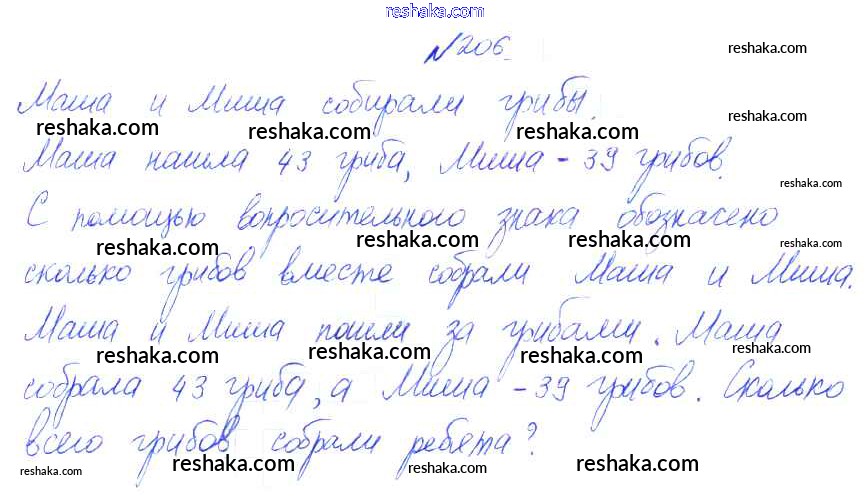 reshaka.com
№206 reshaka.com
Маша и Миша собирали грибы. reshaka.com
reshaka.com reshaka.com reshaka.com
Маша нашла 43 гриба, Миша - 39 грибов.
reshaka.com
С помощью вопросительного знака обозначено
reshaka.com reshaka.com reshaka.com reshaka.com
сколько грибов вместе собрали Маша и Миша.
Маша и Миша пошли за грибами. Маша
reshaka.com reshaka.com reshaka.com reshaka.com
собрала 43 гриба, а Миша - 39 грибов. Сколько
всего грибов собрали ребята?
reshaka.com reshaka.com reshaka.com reshaka.com